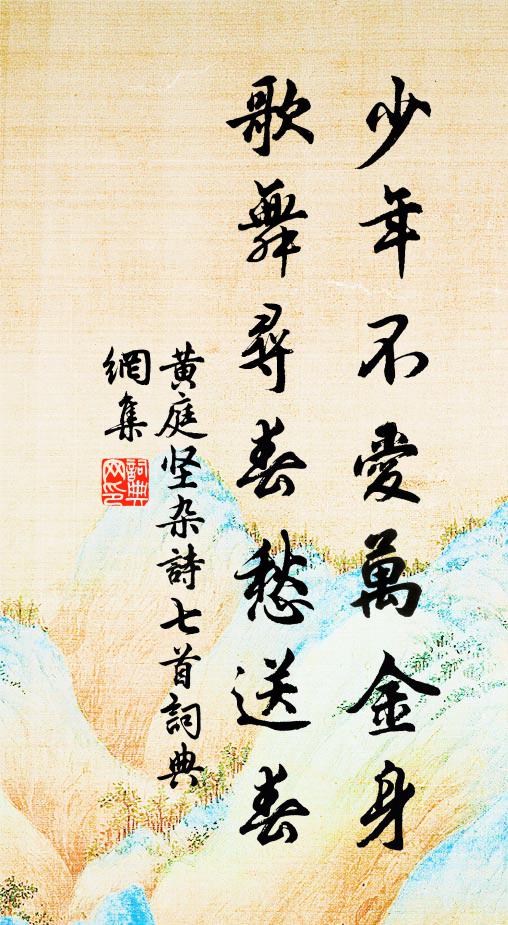 少年不愛萬金身
歌舞尋春愁送春
黄庭坚杂詩七首詞典
網集
詞典
网印